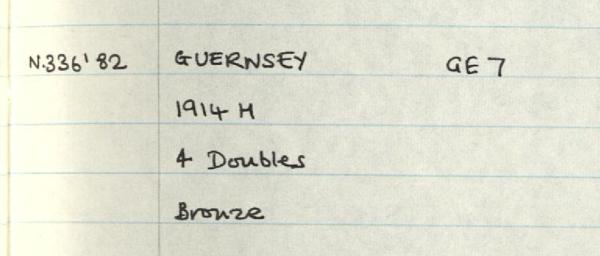 N.336'82 GUERNSEY GE 7
1914 H
4 Doubles
Bronze